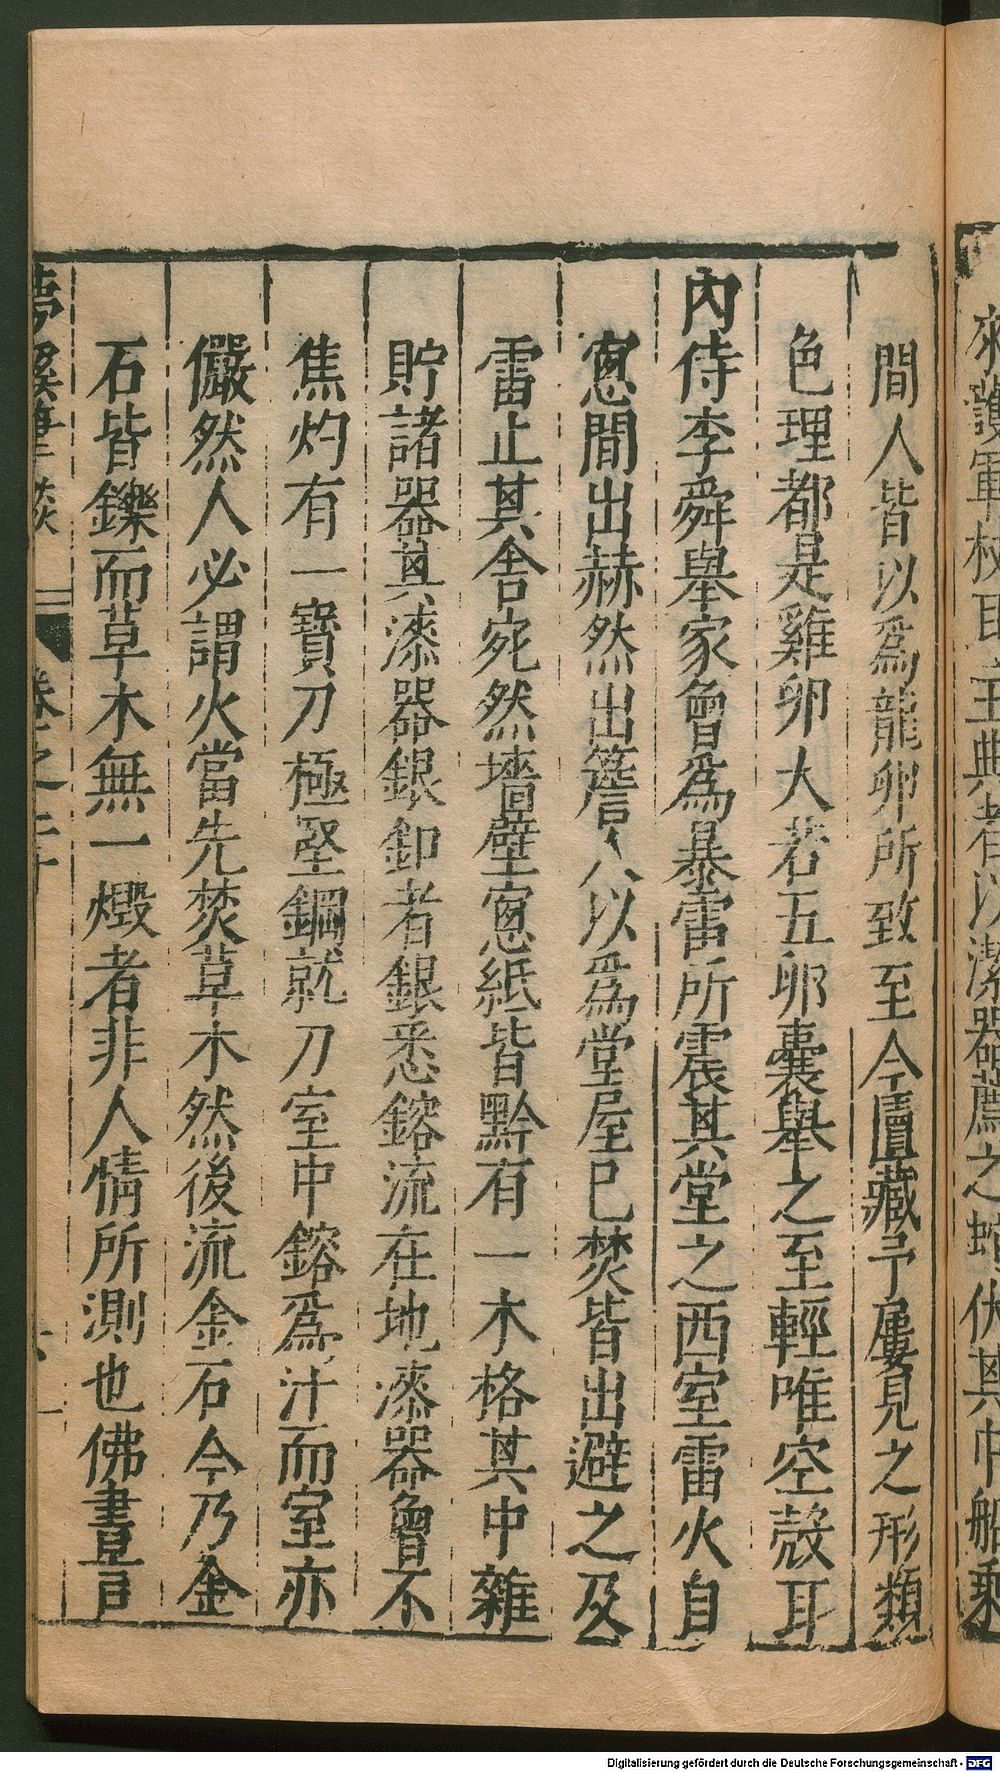 間人皆以爲龍卵所致至今匵藏予屢見之形類
色理都是雞卵大若五卵囊舉之至輕唯空殼耳
內侍李舜舉家曾爲暴雷所震其堂之西室雷火自
窻間出赫然出簷人以爲堂屋已焚皆出避之及
雷止其舍宛然墻壁窻紙皆黔有一木格其中雜
貯諸器其漆器銀釦者銀悉鎔流在地漆器曾不
焦灼有一寶刀極堅鋼就刀室中鎔爲汁而室亦
儼然人必謂火當先焚草木然後流金石今乃金
石皆鑠而草木無一燬者非人情所測也佛書言
夢溪筆談 卷之二十
Digitalisierung gefördert durch die Deutsche Forschungsgemeinschaft - DFG